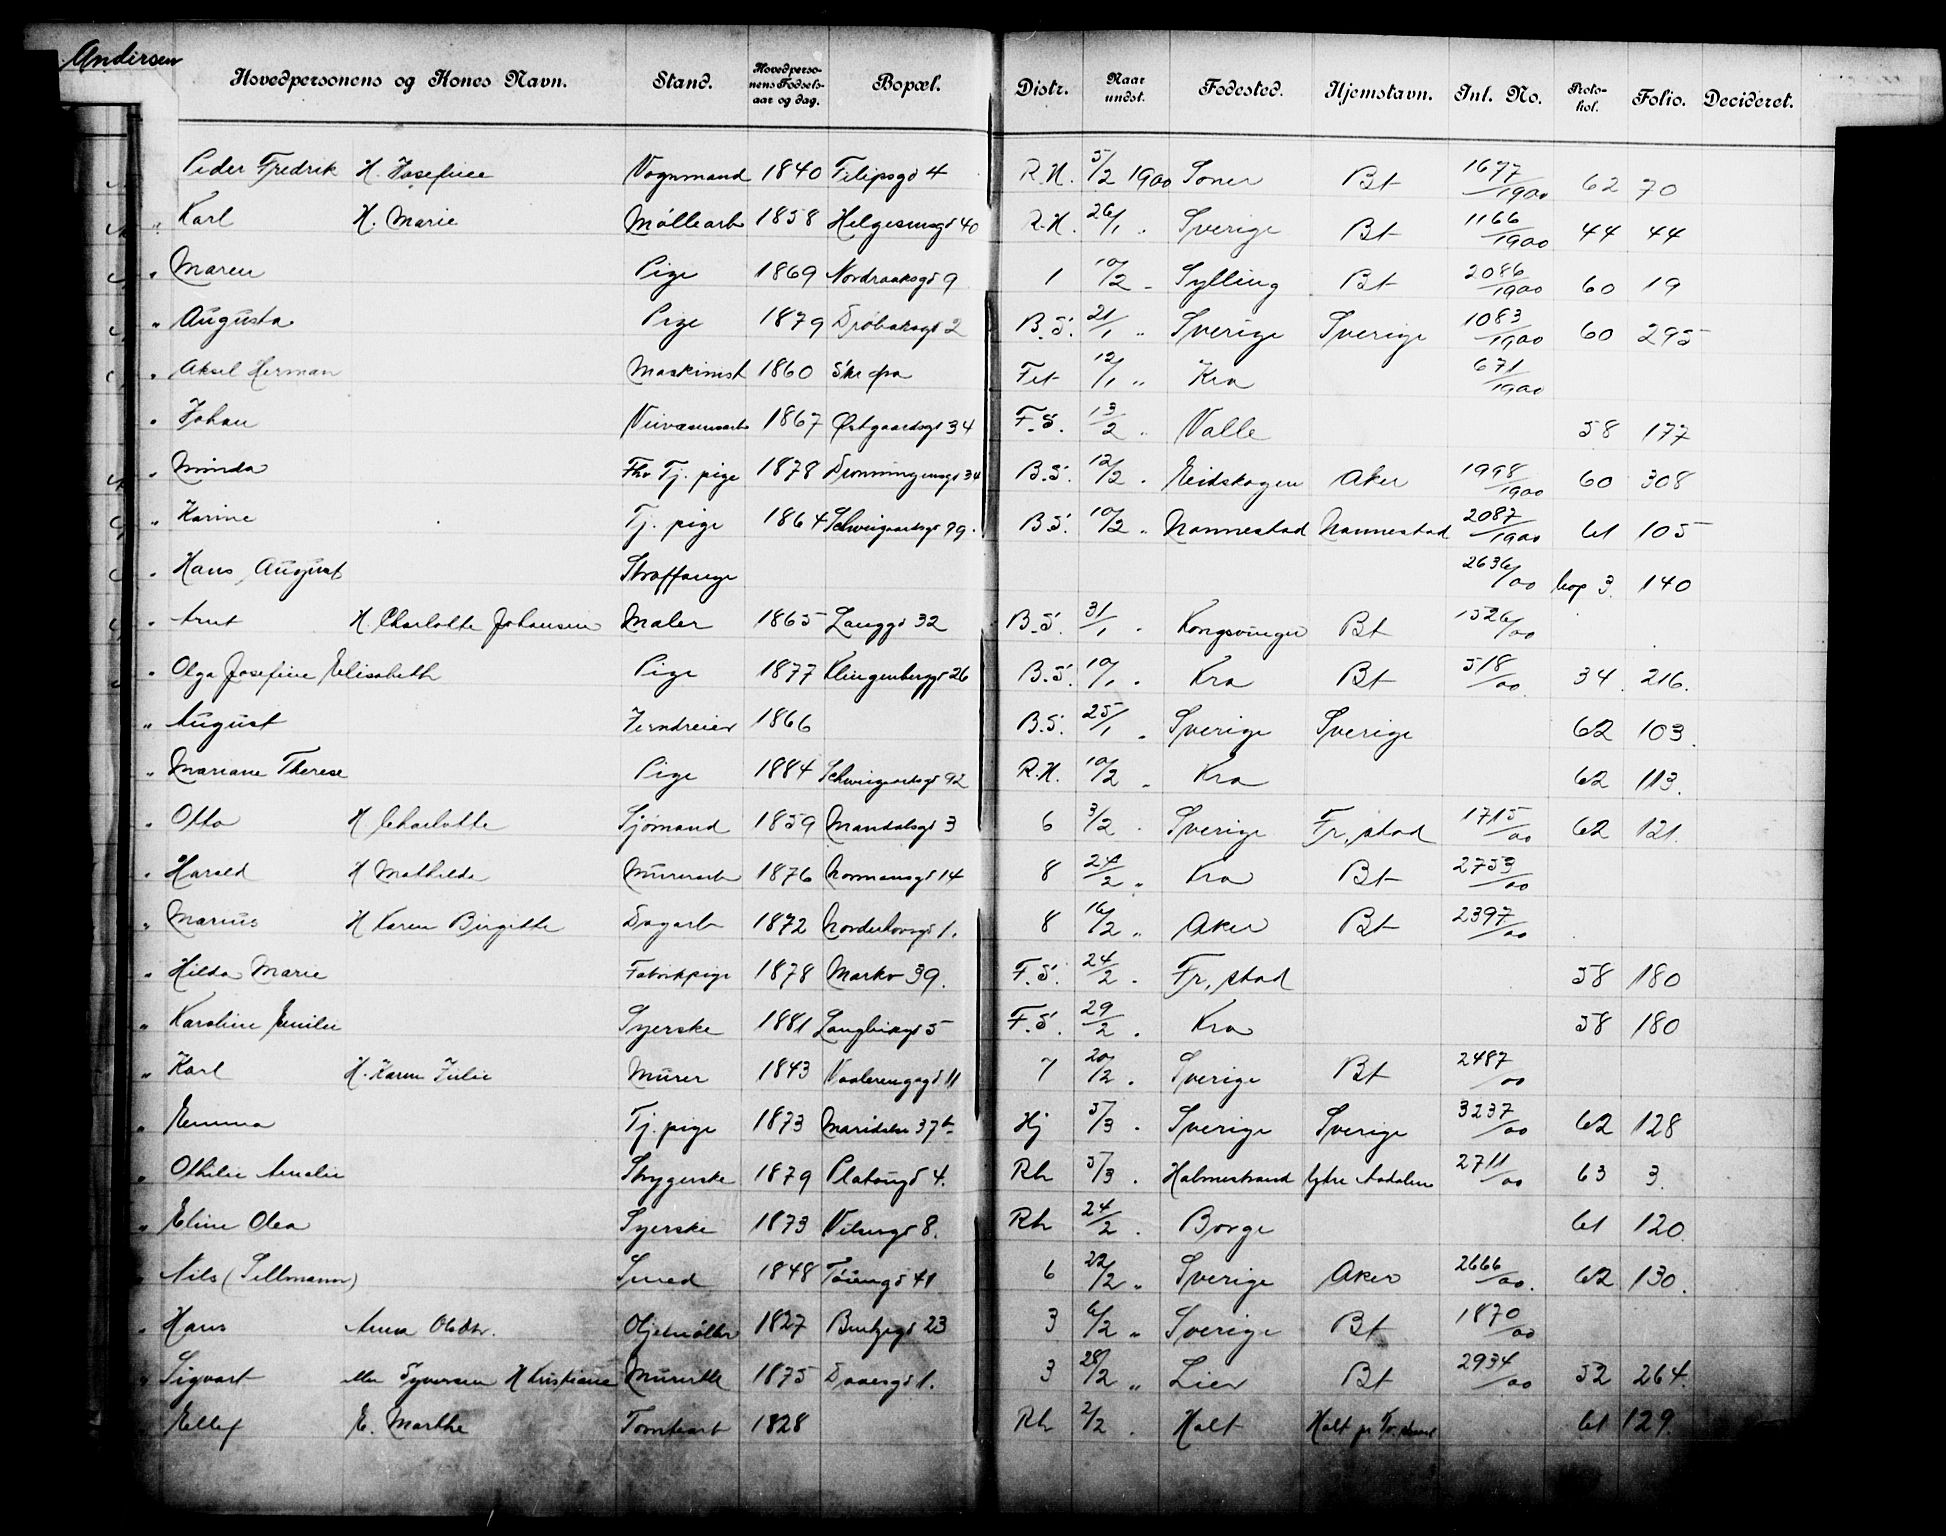 Andersen
Hovedpersonens og Kones Navn. Stand. Hovedpersonens Fødselsaar og dag. Bopæl. Distr. Naar undst. Fødested. Hjemstavn. Inl. No. Protokol. Folio. Decideret.
Peder Fredrik H. Josefine Vognmand 1840 Filipsgd 4 R.H. 5/2 1900 Soner Bt 1677/1900 62 70
" Karl H. Marie Møllearb 1858 Helgesensgd 40 R.H. 26/1 " Sverige Bt 1166/1900 44 44
" Maren Pige 1869 Nordraaksgd 9 1 10/2 " Sylling Bt 2086/1900 60 19
" Augusta Pige 1879 Drøbaksgd 2 B.S. 21/1 " Sverige Sverige 1083/1900 60 295
" Aksel Herman Maskinist 1860 Fet 12/1 " Kra 671/1900
" Johan 1867 Østgaardsgd 34 F.S. 13/2 " Valle 58 177
" Minda Fhv Tj. pige 1878 Dronningensgd 34 B.S. 12/2 " Eidskogen Aker 1998/1900 60 308
" Karine Tj. pige 1864 Schweigaardsgd 79 B.S. 10/2 " Nannestad Nannestad 2087/1900 61 105
" Hans August Straffange 2636/00 3 140
" Arnt H Charlotte Johansen Maler 1865 Langgd 32 B.S. 31/1 " Kongsvinger Bt 1526/00
" Olga Josefine Elisabeth Pige 1877 Klingenberggd 26 B.S. 10/1 " Kra Bt 518/00 34 216.
" August Jerndreier 1866 B.S. 25/1 " Sverige Sverige 62 103.
" Mariane Therese Pige 1884 Schweigaardsgd 92 R.H. 10/2 " Kra 62 113.
" Otto H Charlotte Sjømand 1859 Mandalsgd 3 6 3/2 " Sverige Fr,stad 1715/00 62 121.
" Harald H Mathilde Murerarb 1876 Normansgd 14 8 24/2 " Kra Bt 2753/00
" Marius H Karen Birgitte Dagarb 1872 Norderhovsgd 1. 8 16/2 " Aker Bt 2397/00
" Hilda Marie Fabrikpige 1878 Markv 39. F.S. 24/2 " Fr,stad 58 180
" Karoline Emilie Syerske 1881 Langbiksgd 5 F.S. 29/2 " Kra 58 180
" Karl H. Karen Julie Murer 1843 Vaalerenggd 11 7 20/2 " Sverige Bt 2487/00
" Emma Tj. pige 1873 Maridalsv 37b Hj 5/3 " Sverige Sverige 3237/00 62 128
" Othilie Amalie Strygerske 1879 Platousgd 4. Rh 5/3 " Holmestrand Ytre Aadalen 2711/00 63 3.
" Eline Olea Syerske 1873 Vibesgd 8. Rh 24/2 " Borge 61 120.
" Nils (Sillmann) Smed 1848 Tøiengd 41 6 22/2 " Sverige Aker 2666/00 62 130.
" Hans Anna Olsdtr. 1827 23 3 6/2 " Sverige Bt 1870/00
" Sigvart eller Syversen H Kristiane 1875 Daaesgd 1. 3 28/2 " Lier Bt 2934/00 52 264.
Ellef E. Marthe Tomtearb 1828 Rh 2/2 " Holt Holt pr Tv.strand 61 129.